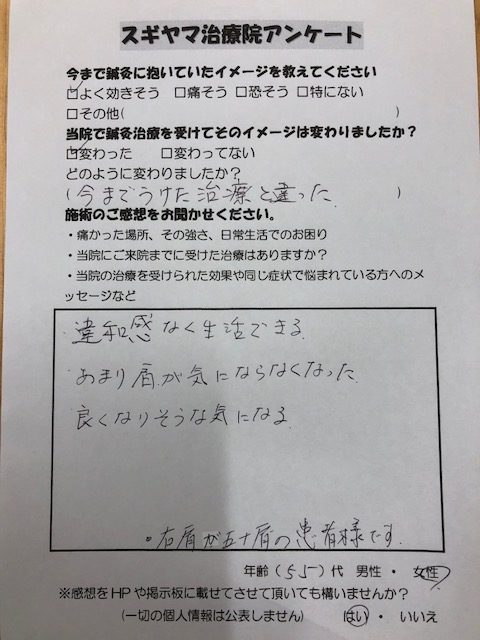 スギヤマ治療院アンケート
今まで鍼灸に抱いていたイメージを教えてください
☑よく効きそう □痛そう □恐そう □特にない
□その他( )
当院で鍼灸治療を受けてそのイメージは変わりましたか？
☑変わった □変わってない
どのように変わりましたか？
(今までうけた治療と違った. )
施術のご感想をお聞かせください。
・痛かった場所、その強さ、日常生活でのお困り
・当院にご来院までに受けた治療はありますか？
・当院の治療を受けられた効果や同じ症状で悩まれている方へのメ
ッセージなど
・違和感なく生活できる.
・あまり肩が気にならなくなった.
・良くなりそうな気になる.
・右肩が五十肩の患者様です.
年齢(55)代 男性・女性
※感想をHPや掲示板に載せてさせて頂いても構いませんか？
(一切の個人情報は公表しません) はい・いいえ